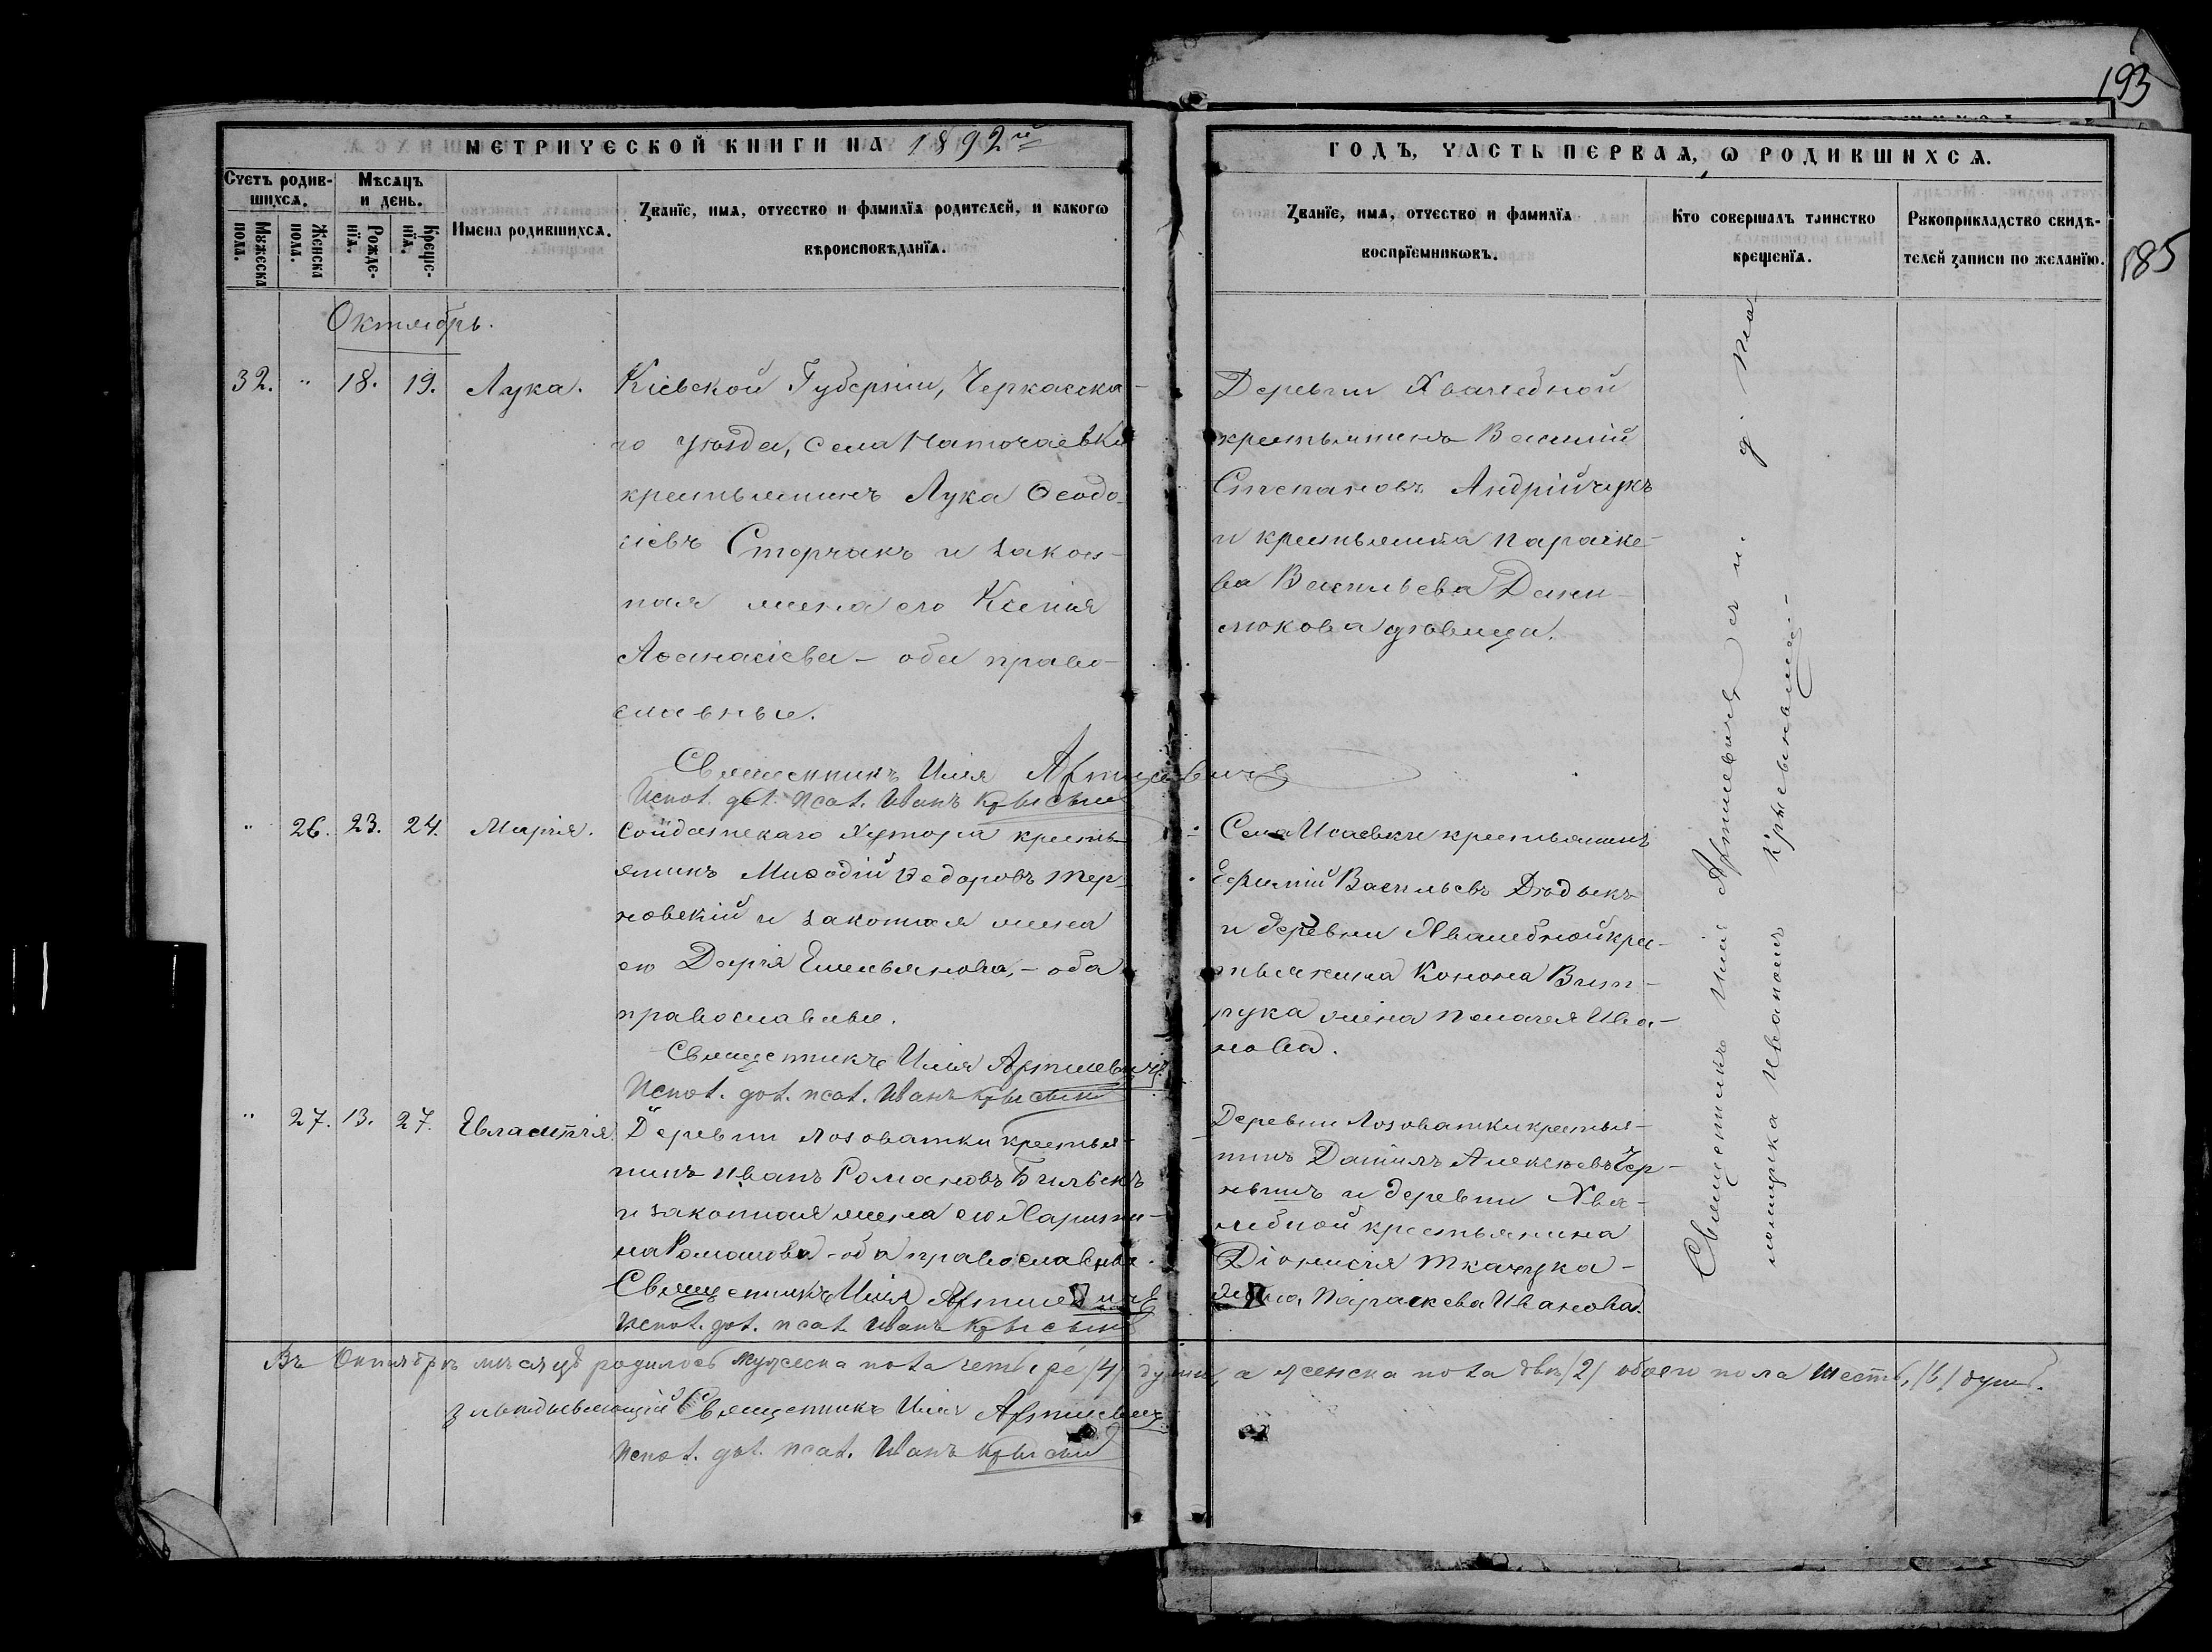 193
185
МЕТРИЧЕСКОЙ КНИГИ НА 1892й
ГОДЪ, ЧАСТЬ ПЕРВАѦ, Ѡ РОДИВШИХСѦ.
Счетъ родив-
шихсѧ.
Мꙋжеска
пола.
Женска
пола.
Мѣсѧцъ
и день.
Рожде-
нїѧ.
Креще-
нїѧ.
Имена родившихсѧ.
Званїе, имѧ, отчество и фамилїѧ родителей, и какогѡ
вѣроисповѣданїѧ.
Званїе, имѧ, отчество и фамилїѧ
воспрїемникѡвъ.
Кто совершалъ таинство
крещенїѧ.
Рꙋкоприкладство свидѣ-
телей записи по желанїю.
Октябрь.
32. " 18. 19. Лука.
Кіевской Губерніи, Черкасска-
го уѣзда, села
крестьянинъ Лука Ѳеодо-
сіевъ Сторчакъ и закон-
ная жена его Ксенія
Аѳанасіева - оба право-
славные.
Священникъ Илія Артишевичъ
Испол. дол. псал. Иванъ
Деревни Хвалебной
крестьянинъ Василій
Степановъ Андрійчукъ
и крестьянка Параске-
ва Васильева Дани-
люкова дѣвица.
" 26. 23. 24. Марія.
хутора кресть-
янинъ Меѳодій Ѳедоровъ Тер-
новскій и законная жена
его Дарія Емельянова, - оба
православные.
Священникъ Илія Артишевичъ
Испол. дол. псал. Иванъ
Села Исаевки крестьянинъ
Евфимій Васильевъ
и деревни Хвалебной кре-
стьянина Конона Вит-
рука жена Пелагея Ива-
нова.
" 27. 13. 27. Евлампія.
Деревни Лозоватки крестья-
нинъ Иванъ Романовъ
и законная жена его Харити-
на Романова - оба православные.
Священникъ Илія Артишевичъ
Испол. дол. псал. Иванъ
Деревни Лозоватки крестья-
нинъ Даніилъ Алексѣевъ Чер-
нышъ и деревни Хва-
лебной крестьянина
Діонисія Ткачука -
жена, Параскева Иванова.
Священникъ Илія Артишевичъ съ и. д. пса
ломщика Иваномъ
Въ Октябрѣ мѣсяцѣ родилось мужеска пола четыре /4/ души, а женска пола двѣ /2/ обоего пола шесть, /6/ душъ.
Священникъ Илія Артишевичъ
Испол. дол. псал. Иванъ